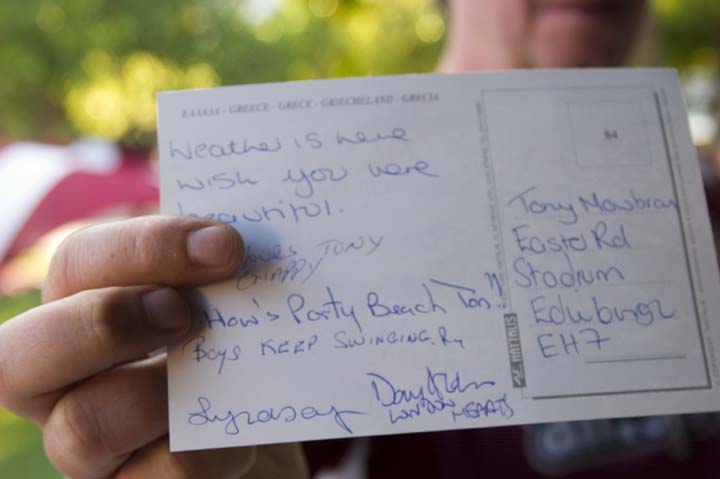 ΕΛΛΑΔΑ - GREECE - GRECE - GRIECHELAND - GRECIA
Weather is here
wish you were
beautiful.
TONY
CHAPPY
How's Party Beach Ton!!
BOYS KEEP SWINGING. Ry
LONDON HEARTS
84
HAITALIS
Tony Mowbray
Easter Rd
Stadium
Edinburgh
EH7